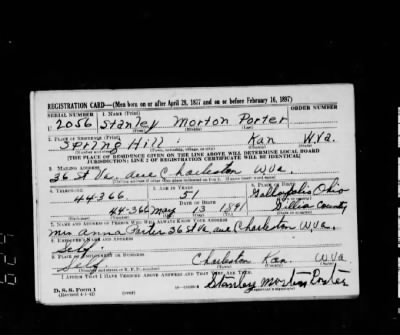 REGISTRATION CARD—(Men born on or after April 28, 1877 and on or before February 16, 1897)
SERIAL NUMBER 1. NAME (Print) ORDER NUMBER
U 2056 Stanley Morton Porter
(First) (Middle) (Last)
2. PLACE OF RESIDENCE (Print)
Spring Hill Kan W.Va.
(Number and street) (Town, township, village, or city) (County) (State)
[THE PLACE OF RESIDENCE GIVEN ON THE LINE ABOVE WILL DETERMINE LOCAL BOARD
JURISDICTION; LINE 2 OF REGISTRATION CERTIFICATE WILL BE IDENTICAL]
3. MAILING ADDRESS
36 St Va. ave Charleston W.Va.
[Mailing address if other than place indicated on line 2. If same insert word same]
4. TELEPHONE 5. AGE IN YEARS 6. PLACE OF BIRTH
44-366 51 Gallopolis Ohio
DATE OF BIRTH
44-366 May 13 1891 County
7. NAME AND ADDRESS OF PERSON WHO WILL ALWAYS KNOW YOUR ADDRESS
Mrs Anna Porter 36 St Va ave Charleston W.Va.
8. EMPLOYER'S NAME AND ADDRESS
Self
9. PLACE OF EMPLOYMENT OR BUSINESS
Self Charleston Kan. W.Va.
(Number and street or R. F. D. number) (Town) (County) (State)
I AFFIRM THAT I HAVE VERIFIED ABOVE ANSWERS AND THAT THEY ARE TRUE.
D. S. S. Form 1 Stanley Morton Porter
(Revised 4-1-42) (over) (Registrant's signature)